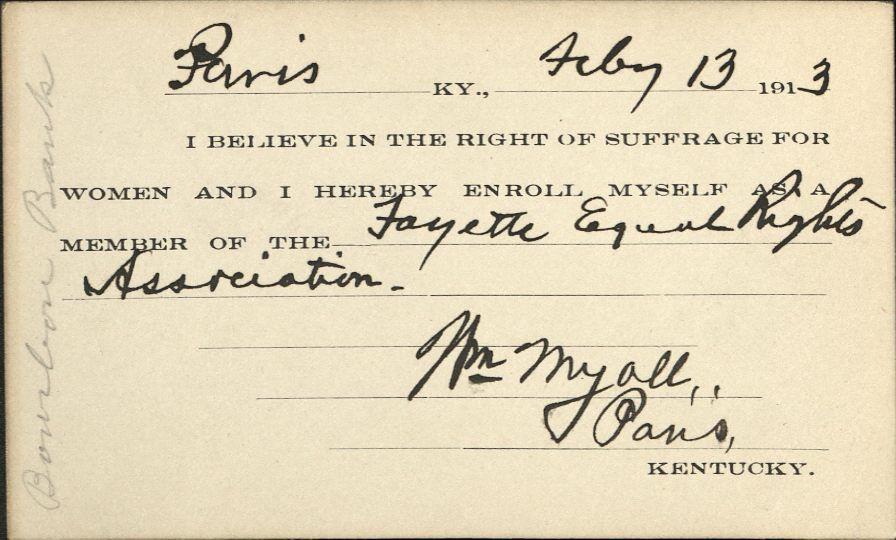 Paris KY., Feby 13 1913
I BELIEVE IN THE RIGHT OF SUFFRAGE FOR
WOMEN AND I HEREBY ENROLL MYSELF AS A
MEMBER OF THE Fayette Equal Rights
Association.
Wm Myall,
Paris,
KENTUCKY.
Bourbon Bank